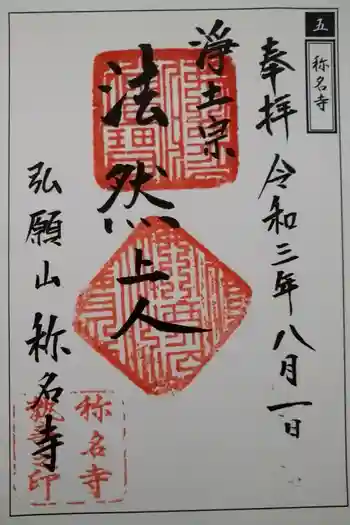 五
称名寺
奉拝 令和三年八月一日
浄土宗
法然上人
弘願山 称名寺
称名寺